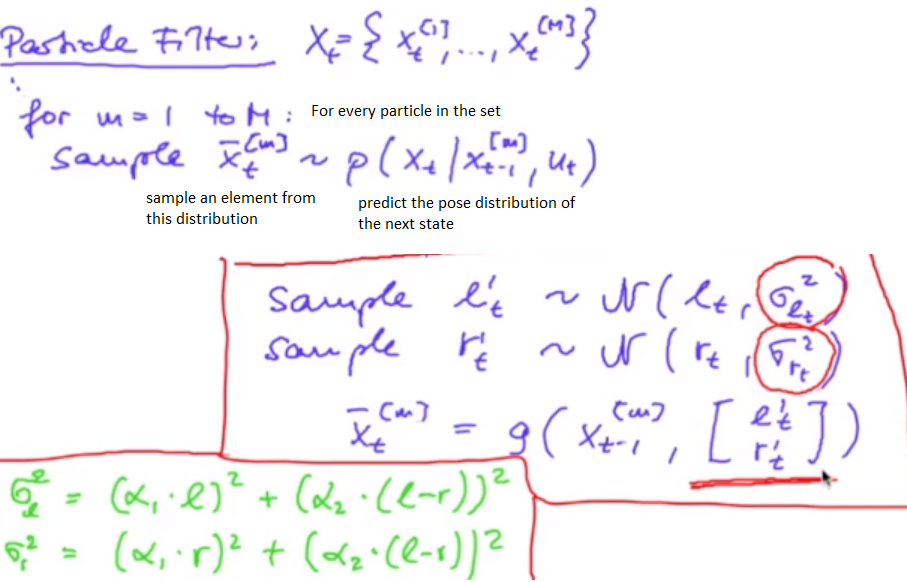 Particle Filter: X_t = { x_t^[1], ..., x_t^[M] }
for m = 1 to M : For every particle in the set
sample x̄_t^[m] ~ p ( x_t | x_{t-1}^[m], u_t )
sample an element from this distribution
predict the pose distribution of the next state
sample l'_t ~ N ( l_t, σ_{l_t}^2 )
sample r'_t ~ N ( r_t, σ_{r_t}^2 )
x̄_t^[m] = g ( x_{t-1}^[m], [ l'_t r'_t ] )
σ_l^2 = (α_1 · l)^2 + (α_2 · (l-r))^2
σ_r^2 = (α_1 · r)^2 + (α_2 · (l-r))^2